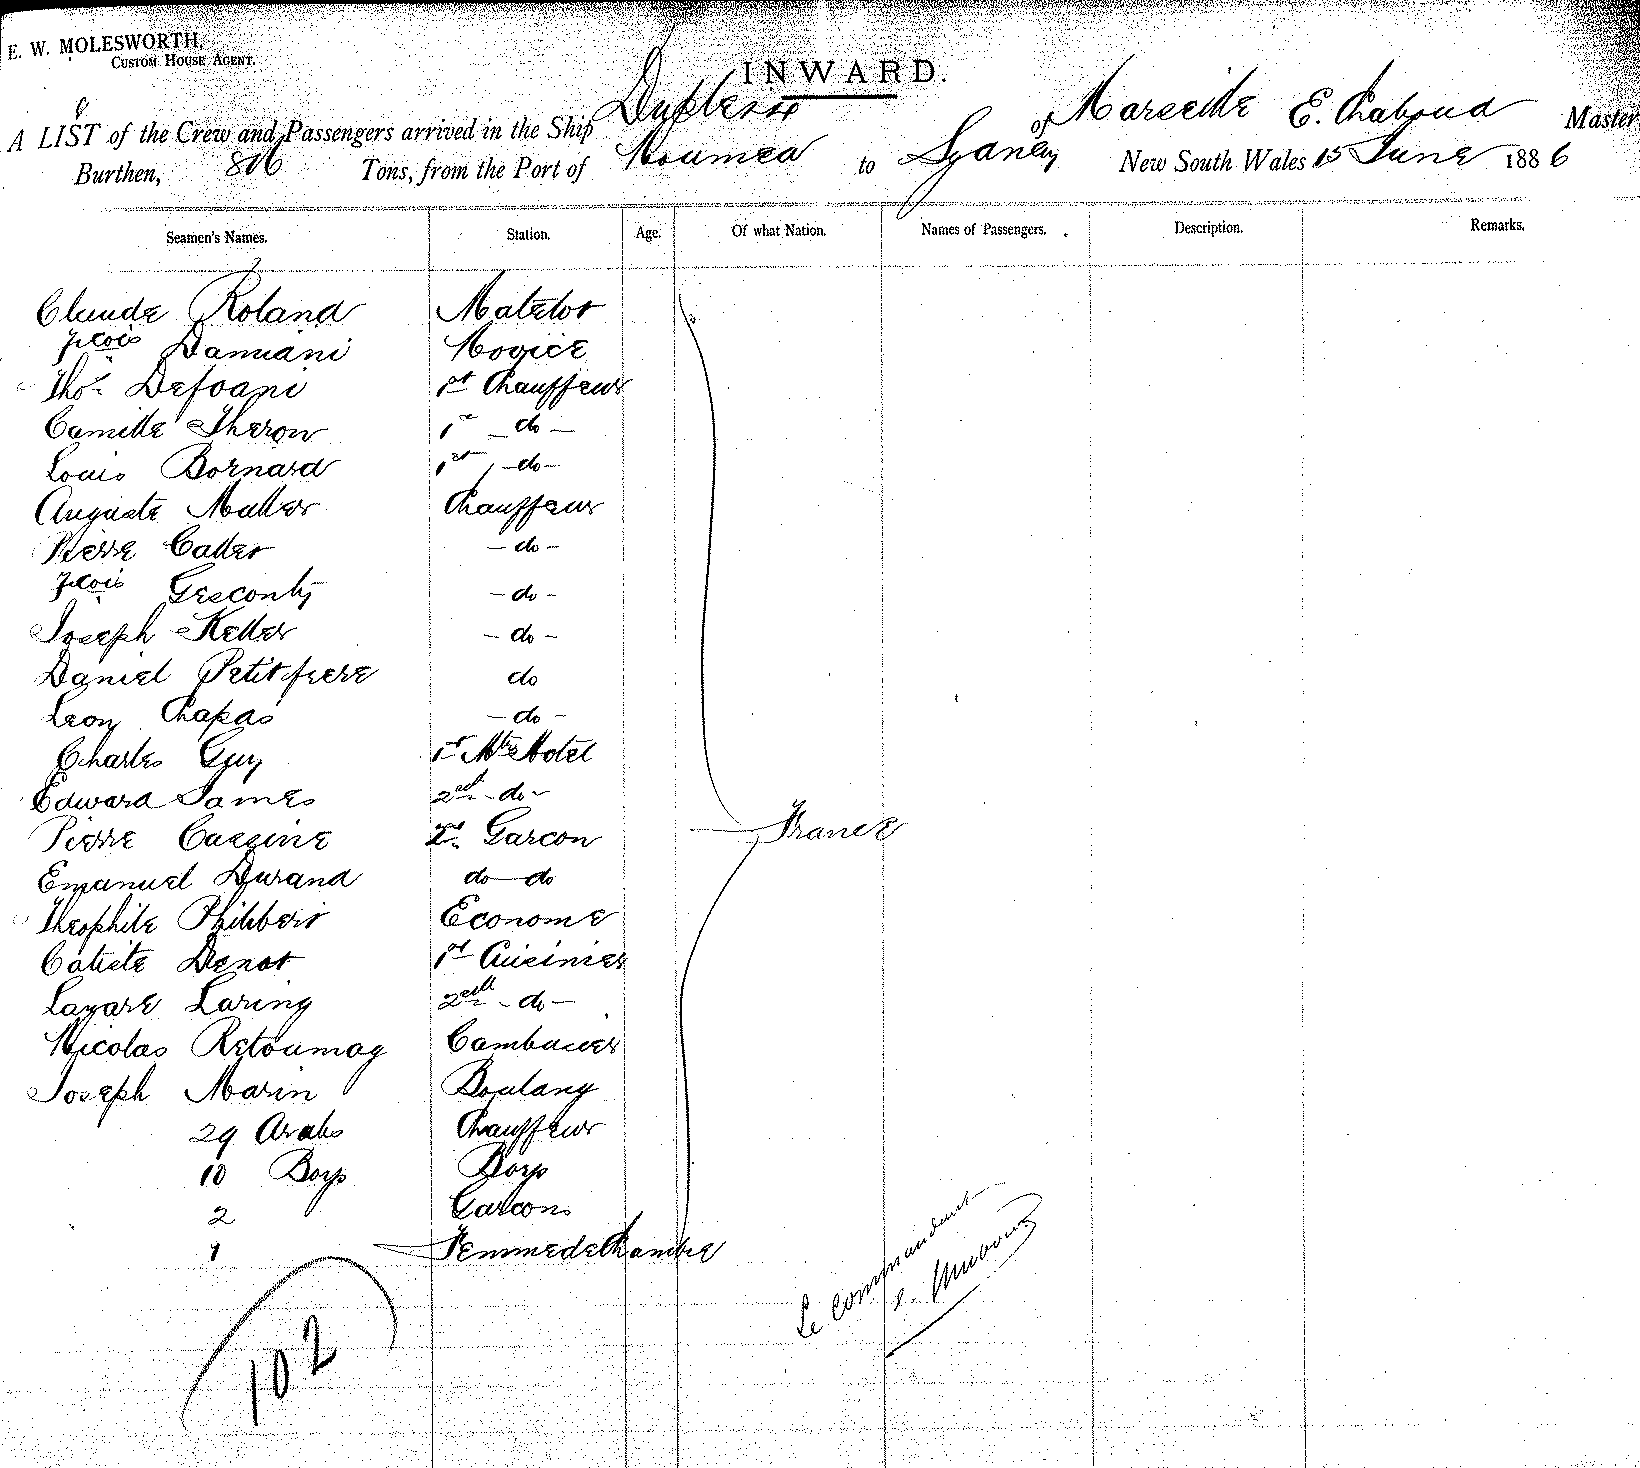 E. W. MOLESWORTH,
CUSTOM HOUSE AGENT.
INWARD.
A LIST of the Crew and Passengers arrived in the Ship Dupleix of Marseille E. Chaboud Master
Burthen, 806 Tons, from the Port of Noumea to Sydney New South Wales 15 June 1886
Seamen's Names. Station. Age. Of what Nation. Names of Passengers. Description. Remarks.
Claude Roland Matelot
Fcois Damiani Novice
Thos. Defoani 1st Chauffeur
Camille Theron 1st - do -
Louis Bornard 1st - do -
Auguste Muller Chauffeur
Pierre Caller - do -
Fcois Gresconty - do -
Joseph Keller - do -
Daniel Petitfrere do
Leon Chapas - do -
Charles Guy 1st Mtre Hotel
Edward James 2nd - do -
Pierre Cassine 1st Garcon France
Emanuel Durand do do
Theophile Philibert Econome
Catiste Denot 1st Cuisinier
Lazare Laring 2nd - do -
Nicolas Retoumay Cambusier
Joseph Marin Boulang
29 Arabs Chauffeur
10 Boys Boys
2 Garcons
1 Femme de Chambre
Le commandant
E. Chaboud
102